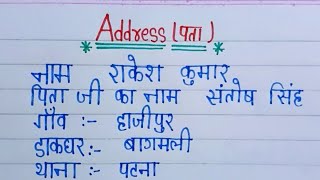 Address (पता)
नाम राकेश कुमार
पिता जी का नाम संतोष सिंह
गाँव :- हाजीपुर
डाकघर:- बागमली
थाना :- पटना